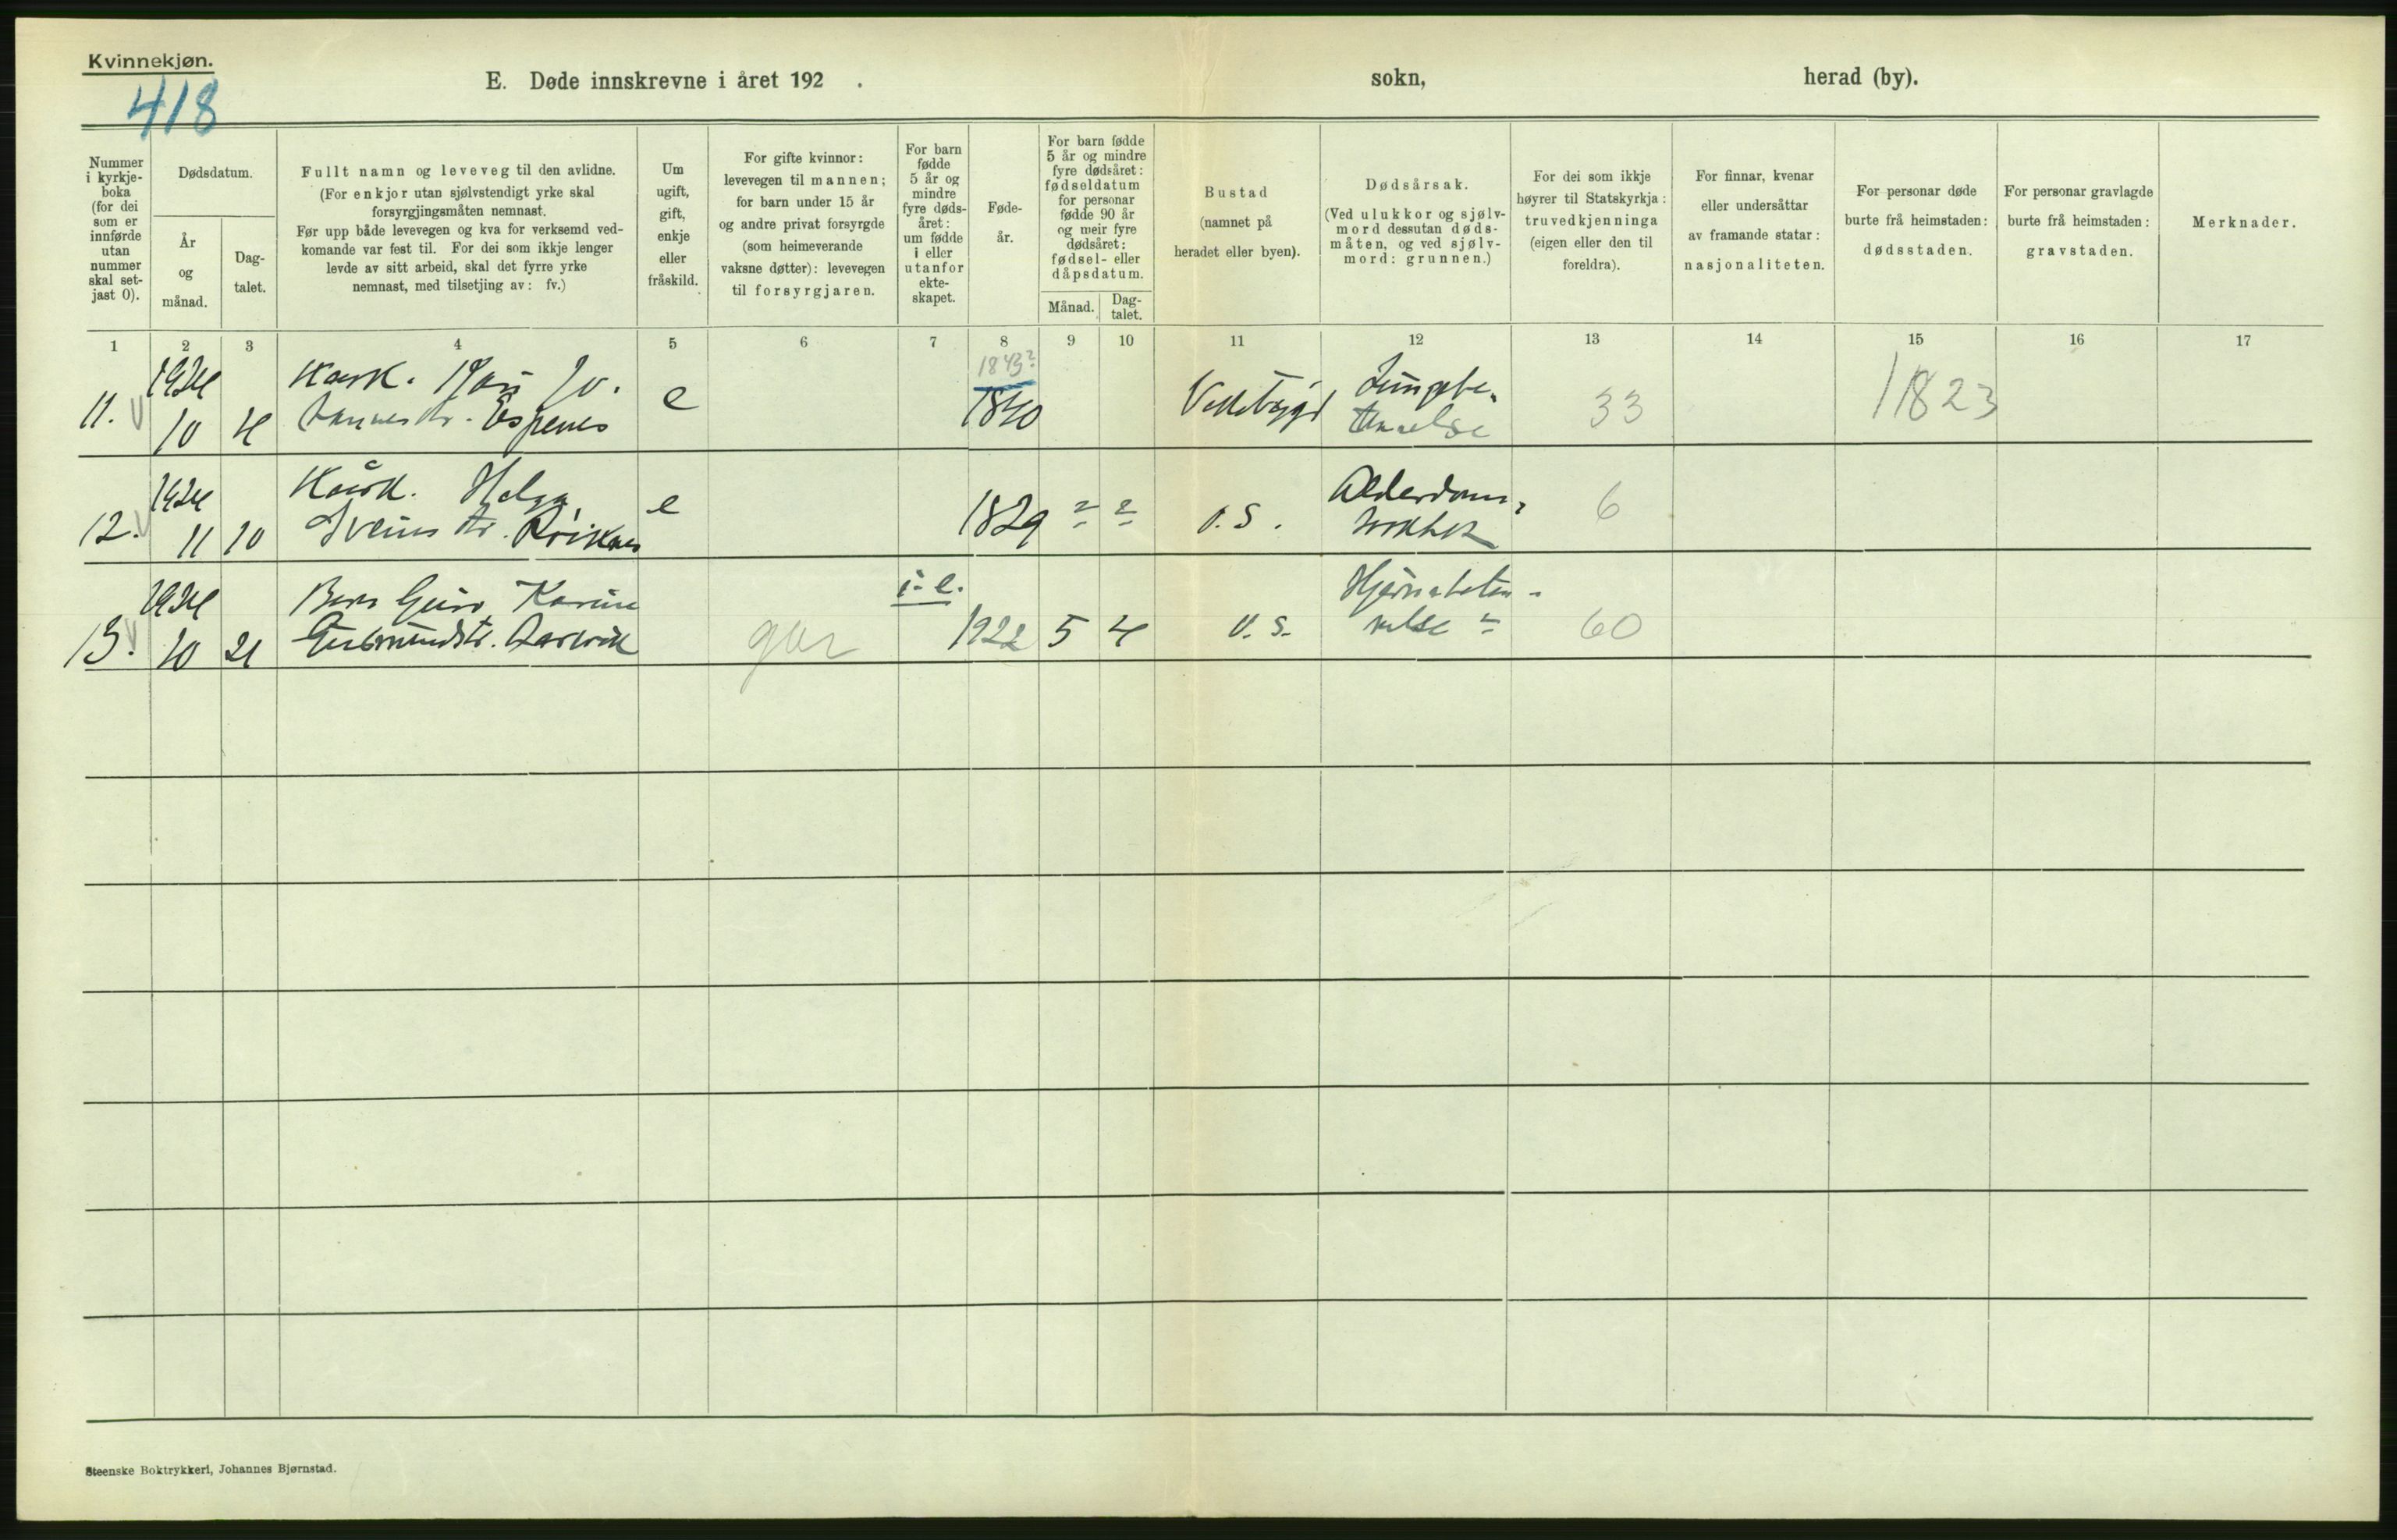 Kvinnekjøn.
418
E. Døde innskrevne i året 192 .
sokn,
herad (by).
Nummer
i kyrkje-
boka
(for dei
som er
innførde
utan
nummer
skal set-
jast 0).
Dødsdatum.
År
og
månad.
Dag-
talet.
Fullt namn og leveveg til den avlidne.
(For enkjor utan sjølvstendigt yrke skal
forsyrgjingsmåten nemnast.
Før upp både levevegen og kva for verksemd ved-
komande var fest til. For dei som ikkje lenger
levde av sitt arbeid, skal det fyrre yrke
nemnast, med tilsetjing av: fv.)
Um
ugift,
gift,
enkje
eller
fråskild.
For gifte kvinnor:
levevegen til mannen;
for barn under 15 år
og andre privat forsyrgde
(som heimeverande
vaksne døtter): levevegen
til forsyrgjaren.
For barn
fødde
5 år og
mindre
fyre døds-
året:
um fødde
i eller
utanfor
ekte-
skapet.
Føde-
år.
For barn fødde
5 år og mindre
fyre dødsåret:
fødseldatum
for personar
fødde 90 år
og meir fyre
dødsåret:
fødsel- eller
dåpsdatum.
Månad.
Dag-
talet.
Bustad
(namnet på
heradet eller byen).
Dødsårsak.
(Ved ulukkor og sjølv-
mord dessutan døds-
måten, og ved sjølv-
mord: grunnen.)
For dei som ikkje
høyrer til Statskyrkja:
truvedkjenninga
(eigen eller den til
foreldra).
For finnar, kvenar
eller undersåttar
av framande statar:
nasjonaliteten.
For personar døde
burte frå heimstaden:
dødsstaden.
For personar gravlagde
burte frå heimstaden:
gravstaden.
Merknader.
1 2 3 4 5 6 7 8 9 10 11 12 13 14 15 16 17
1924 Kaark. 1843?
11. 10 4 Espenes e 1840 33 11823
1924 Kårk. Helga e Alderdoms-
12. 11 10 Røiknes 1829 ? ? d. s. 6
1924 Barn Guro Karine i e.
13. 10 21 Gudmundstr. gar 1922 5 4 d. s. 60
Steenske Boktrykkeri, Johannes Bjørnstad.